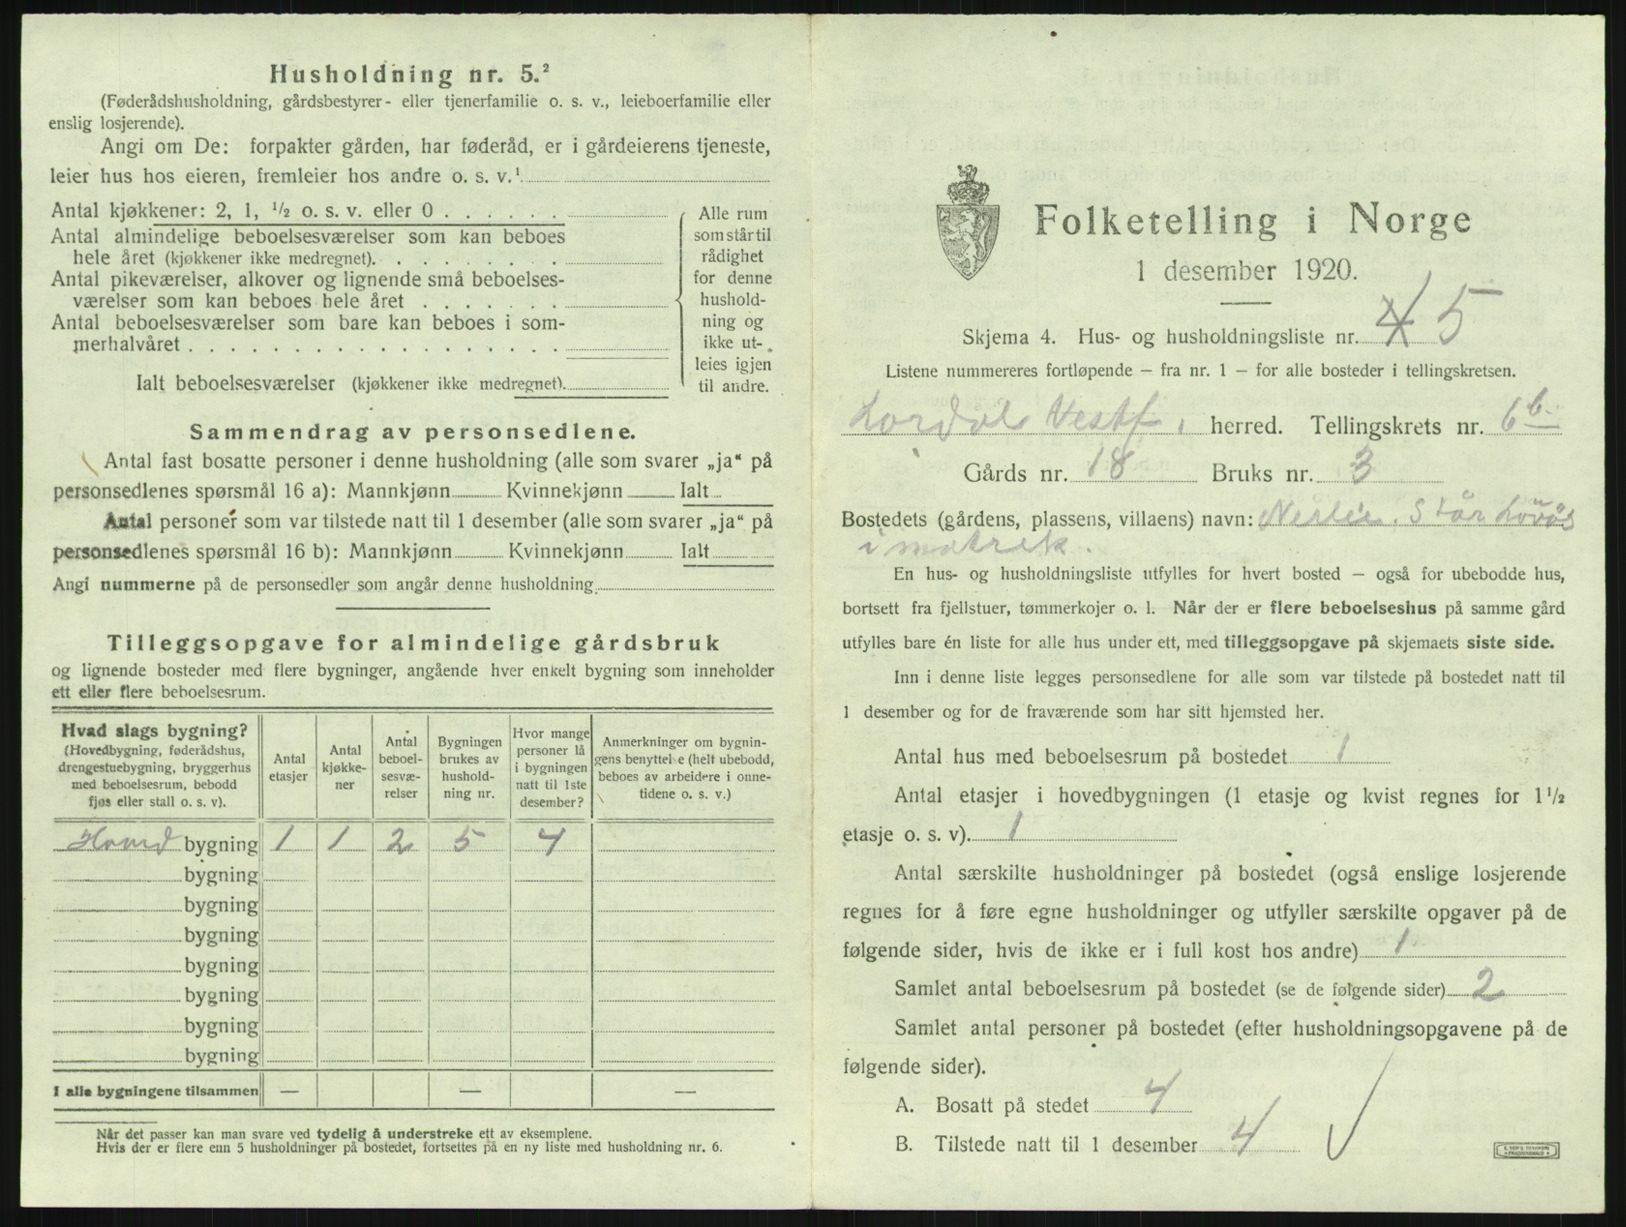 Husholdning nr. 5.²
(Føderådshusholdning, gårdsbestyrer- eller tjenerfamilie o. s. v., leieboerfamilie eller
enslig losjerende).
Angi om De: forpakter gården, har føderåd, er i gårdeierens tjeneste,
leier hus hos eieren, fremleier hos andre o. s. v.¹
Antal kjøkkener: 2, 1, ½ o. s. v. eller 0
Antal almindelige beboelsesværelser som kan beboes
hele året (kjøkkener ikke medregnet).
Antal pikeværelser, alkover og lignende små beboelses-
værelser som kan beboes hele året
Antal beboelsesværelser som bare kan beboes i som-
merhalvåret
Ialt beboelsesværelser (kjøkkener ikke medregnet).
Alle rum
som står til
rådighet
for denne
hushold-
ning og
ikke ut-
leies igjen
til andre.
Sammendrag av personsedlene.
Antal fast bosatte personer i denne husholdning (alle som svarer „ja“ på
personsedlenes spørsmål 16 a): Mannkjønn Kvinnekjønn Ialt
Antal personer som var tilstede natt til 1 desember (alle som svarer „ja“ på
personsedlenes spørsmål 16 b): Mannkjønn Kvinnekjønn Ialt
Angi nummerne på de personsedler som angår denne husholdning
Tilleggsopgave for almindelige gårdsbruk
og lignende bosteder med flere bygninger, angående hver enkelt bygning som inneholder
ett eller flere beboelsesrum.
Hvad slags bygning?
(Hovedbygning, føderådshus,
drengestuebygning, bryggerhus
med beboelsesrum, bebodd
fjøs eller stall o. s. v).
Antal
etasjer
Antal
kjøkke-
ner
Antal
beboel-
sesvæ-
relser
Bygningen
brukes av
hushold-
ning nr.
Hvor mange
personer lå
i bygningen
natt til 1ste
desember?
Anmerkninger om bygnin-
gens benyttelse (helt ubebodd,
beboes av arbeidere i onne-
tidene o. s. v.)
Hoved bygning 1 1 2 5 4
bygning
bygning
bygning
bygning
bygning
bygning
bygning
I alle bygningene tilsammen — — —
Når det passer kan man svare ved tydelig å understreke ett av eksemplene.
Hvis der er flere enn 5 husholdninger på bostedet, fortsettes på en ny liste med husholdning nr. 6.
Folketelling i Norge
1 desember 1920.
Skjema 4. Hus- og husholdningsliste nr. 4 5
Listene nummereres fortløpende — fra nr. 1 — for alle bosteder i tellingskretsen.
herred. Tellingskrets nr. 6b
Gårds nr. 18 Bruks nr. 3
Bostedets (gårdens, plassens, villaens) navn: Nerlie. Står
i matrik.
En hus- og husholdningsliste utfylles for hvert bosted — også for ubebodde hus,
bortsett fra fjellstuer, tømmerkojer o. l. Når der er flere beboelseshus på samme gård
utfylles bare én liste for alle hus under ett, med tilleggsopgave på skjemaets siste side.
Inn i denne liste legges personsedlene for alle som var tilstede på bostedet natt til
1 desember og for de fraværende som har sitt hjemsted her.
Antal hus med beboelsesrum på bostedet 1
Antal etasjer i hovedbygningen (1 etasje og kvist regnes for 1½
etasje o. s. v). 1
Antal særskilte husholdninger på bostedet (også enslige losjerende
regnes for å føre egne husholdninger og utfyller særskilte opgaver på de
følgende sider, hvis de ikke er i full kost hos andre) 1
Samlet antal beboelsesrum på bostedet (se de følgende sider) 2
Samlet antal personer på bostedet (efter husholdningsopgavene på de
følgende sider).
A. Bosatt på stedet 4
B. Tilstede natt til 1 desember 4